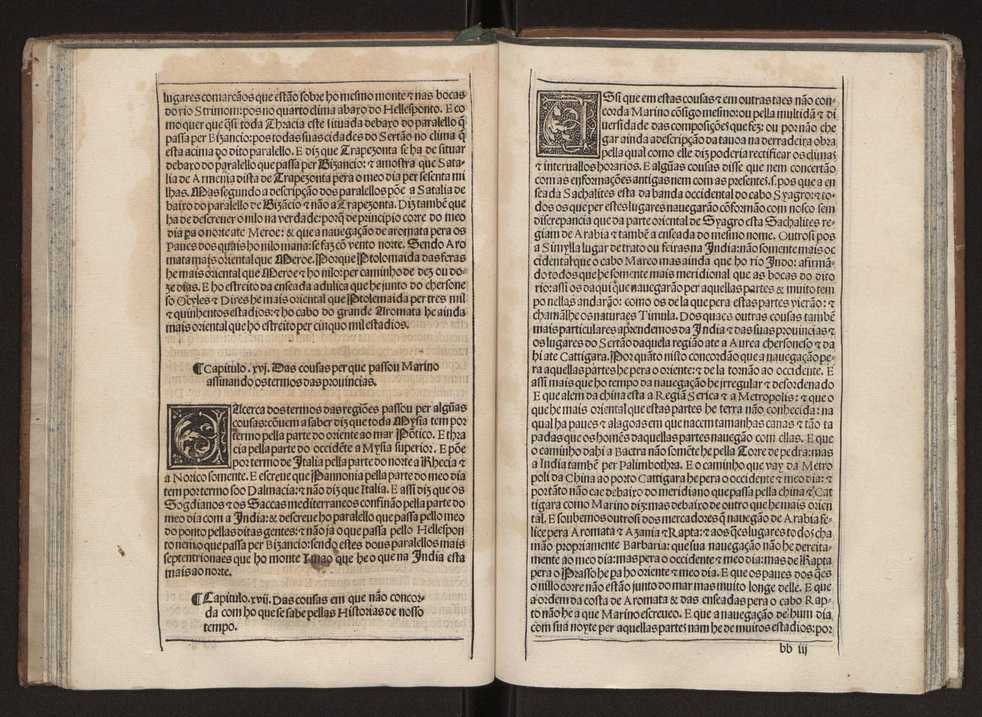 lugares comarcãos que estão sobre ho mesmo monte ⁊ nas bocas
do rio Strimom: pos no quarto clima abaxo do Hellesponto. E co
mo quer que q̃si toda Thracia este situada debaxo do paralello q̃
passa per Bizancio: pos todas suas cidades do Sertão no clima q̃
esta acima do dito parallelo. E diz que Trapezonta se ha de situar
debaxo do paralello que passa per Bizancio: ⁊ amostra que Sata-
lia de Armenia dista de Trapezonta pera o meo dia per sesenta mi
lhas. Mas segundo a descripção dos parallelos põe a Satalia de
baixo do paralello de Bizãcio ⁊ não a Trapezonta. Diz também que
ha de descreuer o nilo na verdade: porq̃ de principio corre do meo
dia pa o norte ate Meroe: & que a nauegação de aromata pera os
paues dos quais ho nilo mana: se faz cõ vento norte. Sendo Aro
mata mais oriental que Meroe. Porque Ptolomaida das feras
he mais oriental que Meroe ⁊ ho nilo: per caminho de dez ou do-
ze dias. E ho estreito da enseada adulica que he junto do cherfone
so Ocyles ⁊ Dires he mais oriental que Ptolemaida per tres mil
⁊ quinhentos estadios: ⁊ ho cabo do grande Aromata he ainda
mais oriental que ho estreito per cinquo mil estadios.
¶ Capitulo. xvj. Das cousas per que passou Marino
assinando os termos das prouincias.
Acerca dos termos das regiões passou per algũas
cousas: cõuem a saber diz que toda Mysia tem por
termo pella parte do oriente ao mar Põtico. E thra
cia pella parte do occidẽte a Mysia superior. E põe
por termo de Italia pella parte do norte a Rhecia ⁊
a Norico somente. E escreue que Pannonia pella parte do meo dia
tem por termo soo Dalmacia: ⁊ não diz que Italia. E assi diz que os
Sogdianos ⁊ os Saccas mediterraneos confinão pella parte do
meo dia com a India: & descreue ho parallelo que passa pello meo
do ponto pellas ditas gentes: ⁊ não ja o que passa pello Hellespon
to nem o que passa per Bizancio: sendo estes dous paralellos mais
septentrionaes que ho monte Imao que he o que na India esta
mais ao norte.
¶ Capitulo. xvij. Das cousas em que não concor-
da com ho que se sabe pellas Historias de nosso
tempo.
ASsi que em estas cousas ⁊ em outras taes não con-
corda Marino cõsigo mesmo: ou pella multidã ⁊ di
uersidade das composições que fez: ou por não che
gar ainda a descripção da tauoa na derradeira obra
pella qual como elle diz poderia rectificar os climas
⁊ interuallos horarios. E algũas cousas disse que nem concertão
com as enformações antigas nem com as presentes. s. pos que a en
seada Sachalites esta da banda occidental do cabo Syagro: ⁊ to-
dos os que per estes lugares nauegarão cõformão com nosco sem
discrepancia que da parte oriental de Syagro esta Sachalites re-
giam de Arabia ⁊ também a enseada do mesmo nome. Outrosi pos
a Simylla lugar de trato ou feiras na India: não somente mais oc
cidental que o cabo Marco mas ainda que ho rio Indo: afirmã-
do todos que he somente mais meridional que as bocas do dito
rio: assi os daqui que nauegarão per aquellas partes & muito tem
po nellas andarão: como os de la que pera estas partes vierão: ⁊
chamãlhe os naturaes Timula. Dos quaes outras cousas també
mais particulares aprendemos da India ⁊ das suas prouincias ⁊
os lugares do Sertão daquela região ate a Aurea chersoneso ⁊ da
hi ate Cattigara. Por quãto nisto concordão que a nauegação pe-
ra aquellas partes he pera o oriente: ⁊ de la tornão ao occidente. E
assi mais que ho tempo da nauegação he irregular ⁊ desordenado
E que alem da china esta a Regiã Serica ⁊ a Metropolis: ⁊ que o
que he mais oriental que estas partes he terra não conhecida: na
qual ha paues ⁊ alagoas em que nacem tamanhas canas ⁊ tão ta
padas que os homẽs daquellas partes nauegão com ellas. E que
o caminho dahi a Bactra não somẽte he pella Torre de pedra: mas
a India també per Palimbothra. E o caminho que vay da Metro
poli da China ao porto Cattigara he pera o occidente ⁊ meo dia: ⁊
portãto não cae debaixo do meridiano que passa pella china ⁊ Cat
tigara como Marino diz: mas debaixo de outro que he mais orien
tal. E soubemos outrosi dos mercadores q̃ nauegão de Arabia fe-
lice pera Aromata ⁊ Azania ⁊ Rapta: ⁊ aos q̃es lugares todos cha
mão propriamente Barbaria: que sua nauegação não he dereita-
mente ao meo dia: mas pera o occidente ⁊ meo dia: mas de Rapta
pera o Prasso he pa ho oriente ⁊ meo dia. E que os paues dos q̃es
o nillo corre não estão junto do mar mas muito longe delle. E que
a ordem da costa de Aromata & das enseadas pera o cabo Rap-
to não he a que Marino escreueo. E que a nauegação de hum dia
com sua noyte per aquellas partes nam he de muitos estadios: por
bb iij